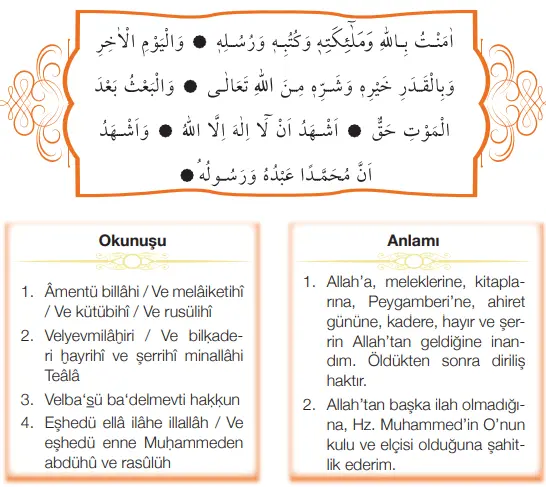 اٰمَنْتُ بِاللّٰهِ وَمَلٰٓئِكَتِه۪ وَكُتُبِه۪ وَرُسُلِه۪ ● وَالْيَوْمِ الْاٰخِرِ
وَبِالْقَدَرِ خَيْرِه۪ وَشَرِّه۪ مِنَ اللّٰهِ تَعَالٰى ● وَالْبَعْثُ بَعْدَ
الْمَوْتِ حَقٌّ ● اَشْهَدُ اَنْ لَٓا اِلٰهَ اِلَّا اللّٰهُ ● وَاَشْهَدُ
اَنَّ مُحَمَّدًا عَبْدُهُ وَرَسُولُهُ ●
Okunuşu
1. Âmentü billâhi / Ve melâiketihî
/ Ve kütübihî / Ve rusülihî
2. Velyevmilâḫiri / Ve bilḳade-
ri ḫayrihî ve şerrihî minallâhi
Teâlâ
3. Velba‘s̲ü ba‘delmevti haḳḳun
4. Eşhedü ellâ ilâhe illallâh / Ve
eşhedü enne Muḥammeden
abdühû ve rasûlüh
Anlamı
1. Allah’a, meleklerine, kitapla-
rına, Peygamberi’ne, ahiret
gününe, kadere, hayır ve şer-
rin Allah’tan geldiğine inan-
dım. Öldükten sonra diriliş
haktır.
2. Allah’tan başka ilah olmadığı-
na, Hz. Muhammed’in O’nun
kulu ve elçisi olduğuna şahit-
lik ederim.